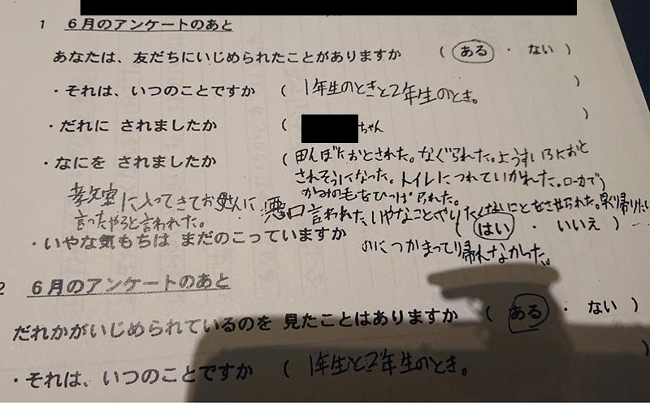 1 6月のアンケートのあと
あなたは、友だちにいじめられたことがありますか ( ある ・ ない )
・それは、いつのことですか ( 1年生のときと2年生のとき。 )
・だれに されましたか ( ちゃん )
・なにを されましたか ( 田んぼにおとされた。なぐられた。ようすいろにおと
されそうになった。トイレにつれていかれた。ローカで
かみのもをひっぱられた。
教室に入ってきてお
言ったやろと言われた。
悪口言われた。いやなことややりたくないことをさせられた。早く帰りたい
・いやな気もちは まだのこっていますか ( はい ・ いいえ )
のにつかまって帰れなかった。
2 6月のアンケートのあと
だれかがいじめられているのを 見たことはありますか ( ある ・ ない )
・それは、いつのことですか ( 1年生と2年生のとき。 )